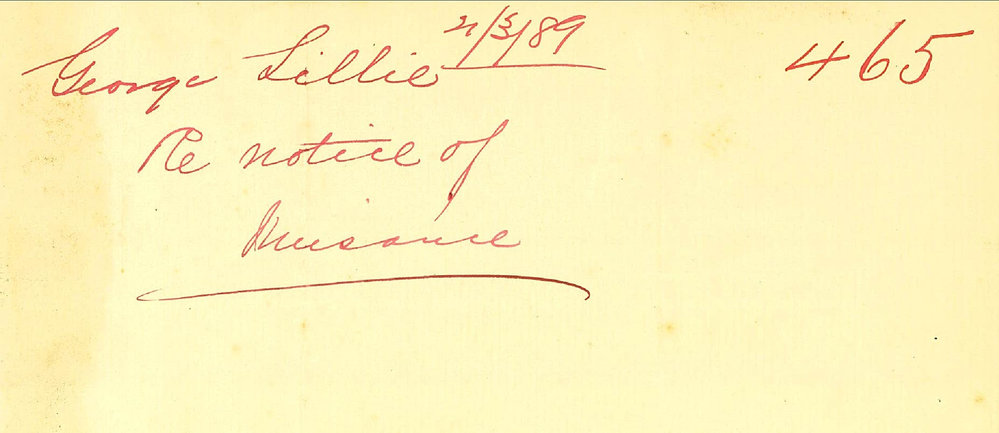 George Lillie 21/5/89 465
Re notice of
Nuisance